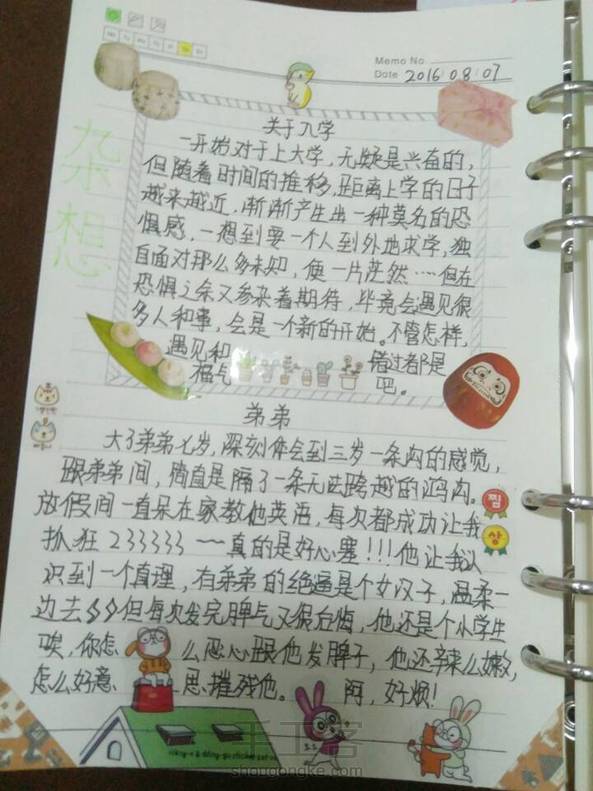 Memo No
Date 2016 08 07
杂想
关于入学
一开始对于上大学，无疑是兴奋的，
但随着时间的推移，距离上学的日子
越来越近，渐渐产生出一种莫名的恐
惧感，一想到要一个人到外地求学，独
自面对那么多未知，便一片茫然……但在
恐惧之余又参杂着期待，毕竟会遇见很
多人和事，会是一个新的开始。不管怎样，
遇见和 错过都是
福气 吧。
弟弟
大了弟弟七岁，深刻体会到三岁一条沟的感觉，
跟弟弟间，简直是隔了一条无法跨越的鸿沟。
放假间一直呆在家教他英语，每次都成功让我
抓狂 233333 ～～真的是好心塞!!!他让我认
识到一个真理，有弟弟的绝逼是个女汉子，温柔一
边去 但每次发完脾气又很后悔，他还是个小学生
唉，你怎 么忍心跟他发脾子，他还辛么嫩，
怎么好意 思摧残他。 阿，好烦!
찜
상
手工客
shougongke.com